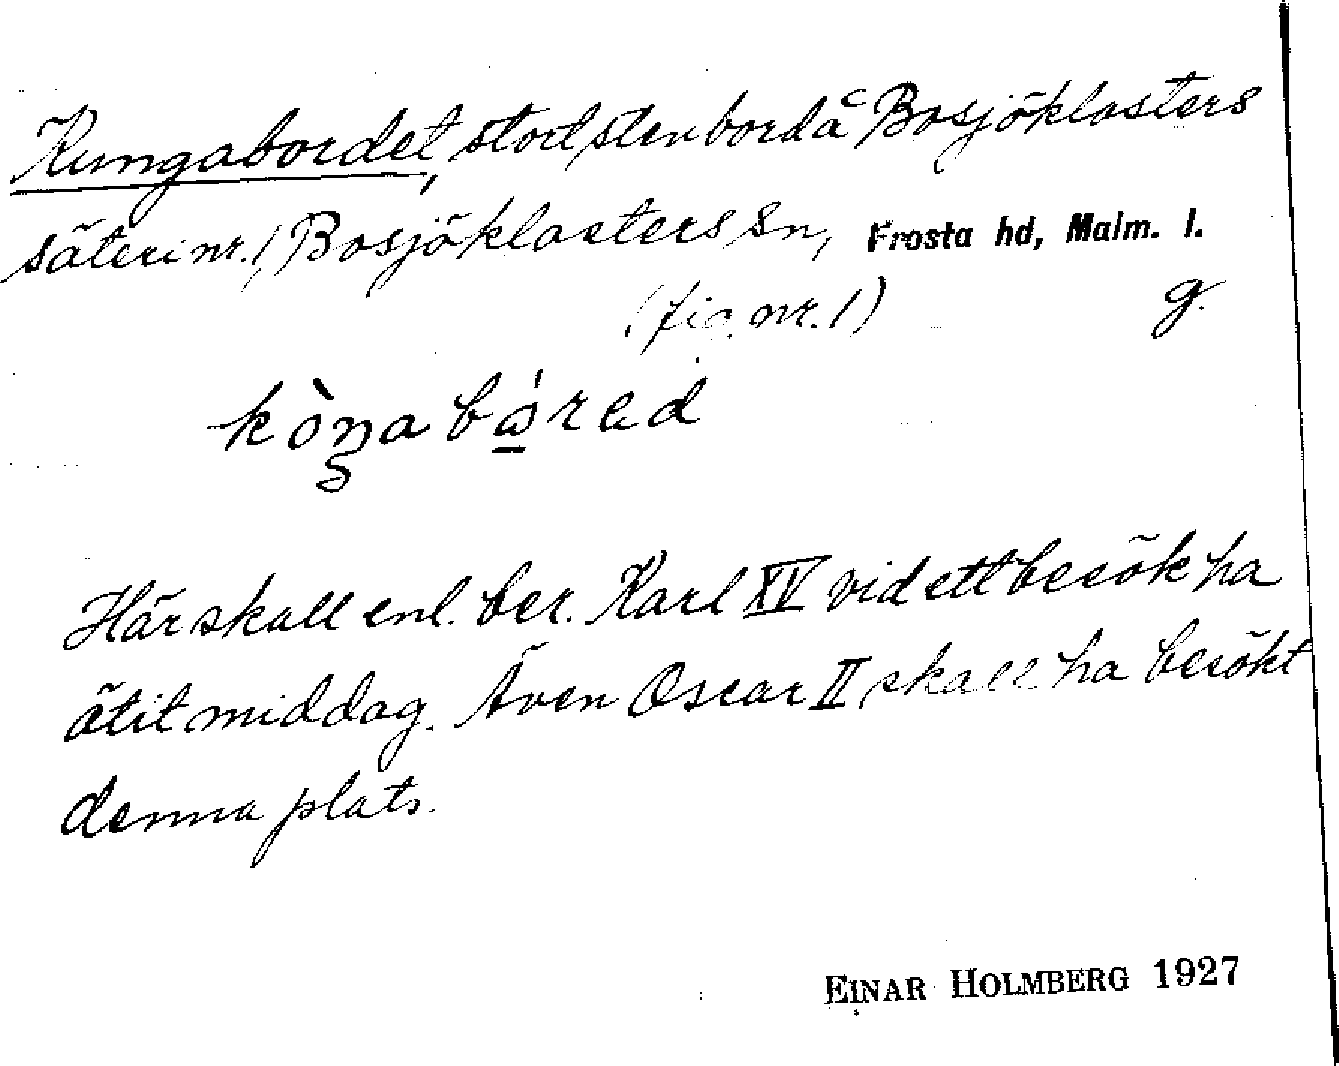 Kungabordet, stort stenbord å Bosjöklosters
säteri nr. 1, Bosjöklosters sn, Frosta hd, Malm. l.
(fig. nr. 1) g.
Här skall enl. ber. Karl XV vid ett besök ha
ätit middag. Även Oscar II skall ha besökt
denna plats.
EINAR HOLMBERG 1927